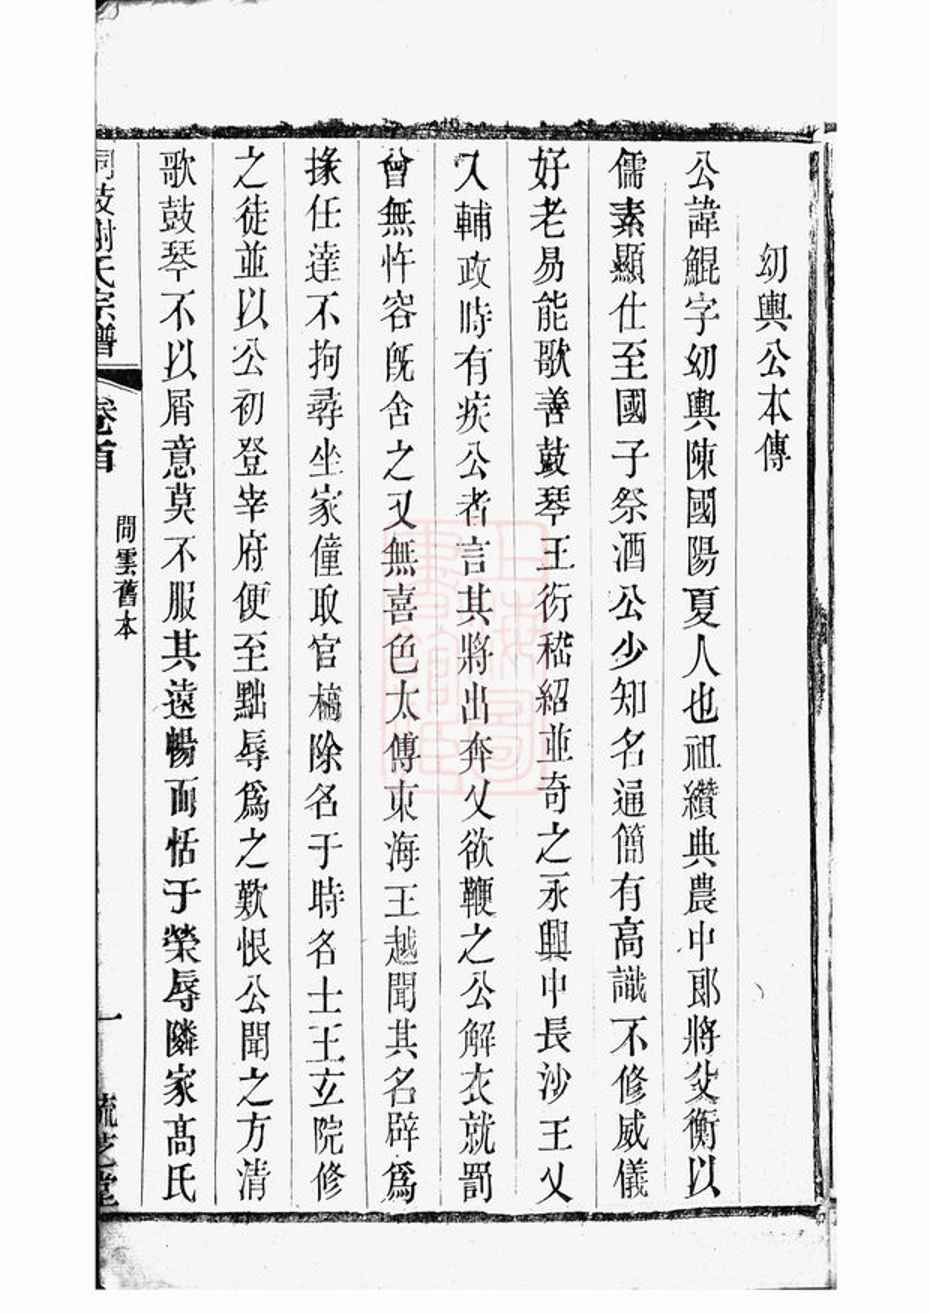 幼輿公本傳
公諱鯤字幼輿陳國陽夏人也祖纘典農中郎將父衡以
儒素顯仕至國子祭酒公少知名通簡有高識不修威儀
好老易能歌善鼓琴王衍嵇紹並奇之永興中長沙王乂
入輔政時有疾公者言其將出奔乂欲鞭之公解衣就罰
曾無忤容旣舍之又無喜色太傅東海王越聞其名辟爲
掾任達不拘尋坐家僮取官槁除名于時名士王玄阮修
之徒並以公初登宰府便至黜辱爲之歎恨公聞之方清
歌鼓琴不以屑意莫不服其遠暢而恬于榮辱隣家高氏
謝氏宗譜
卷首
間雲舊本
一